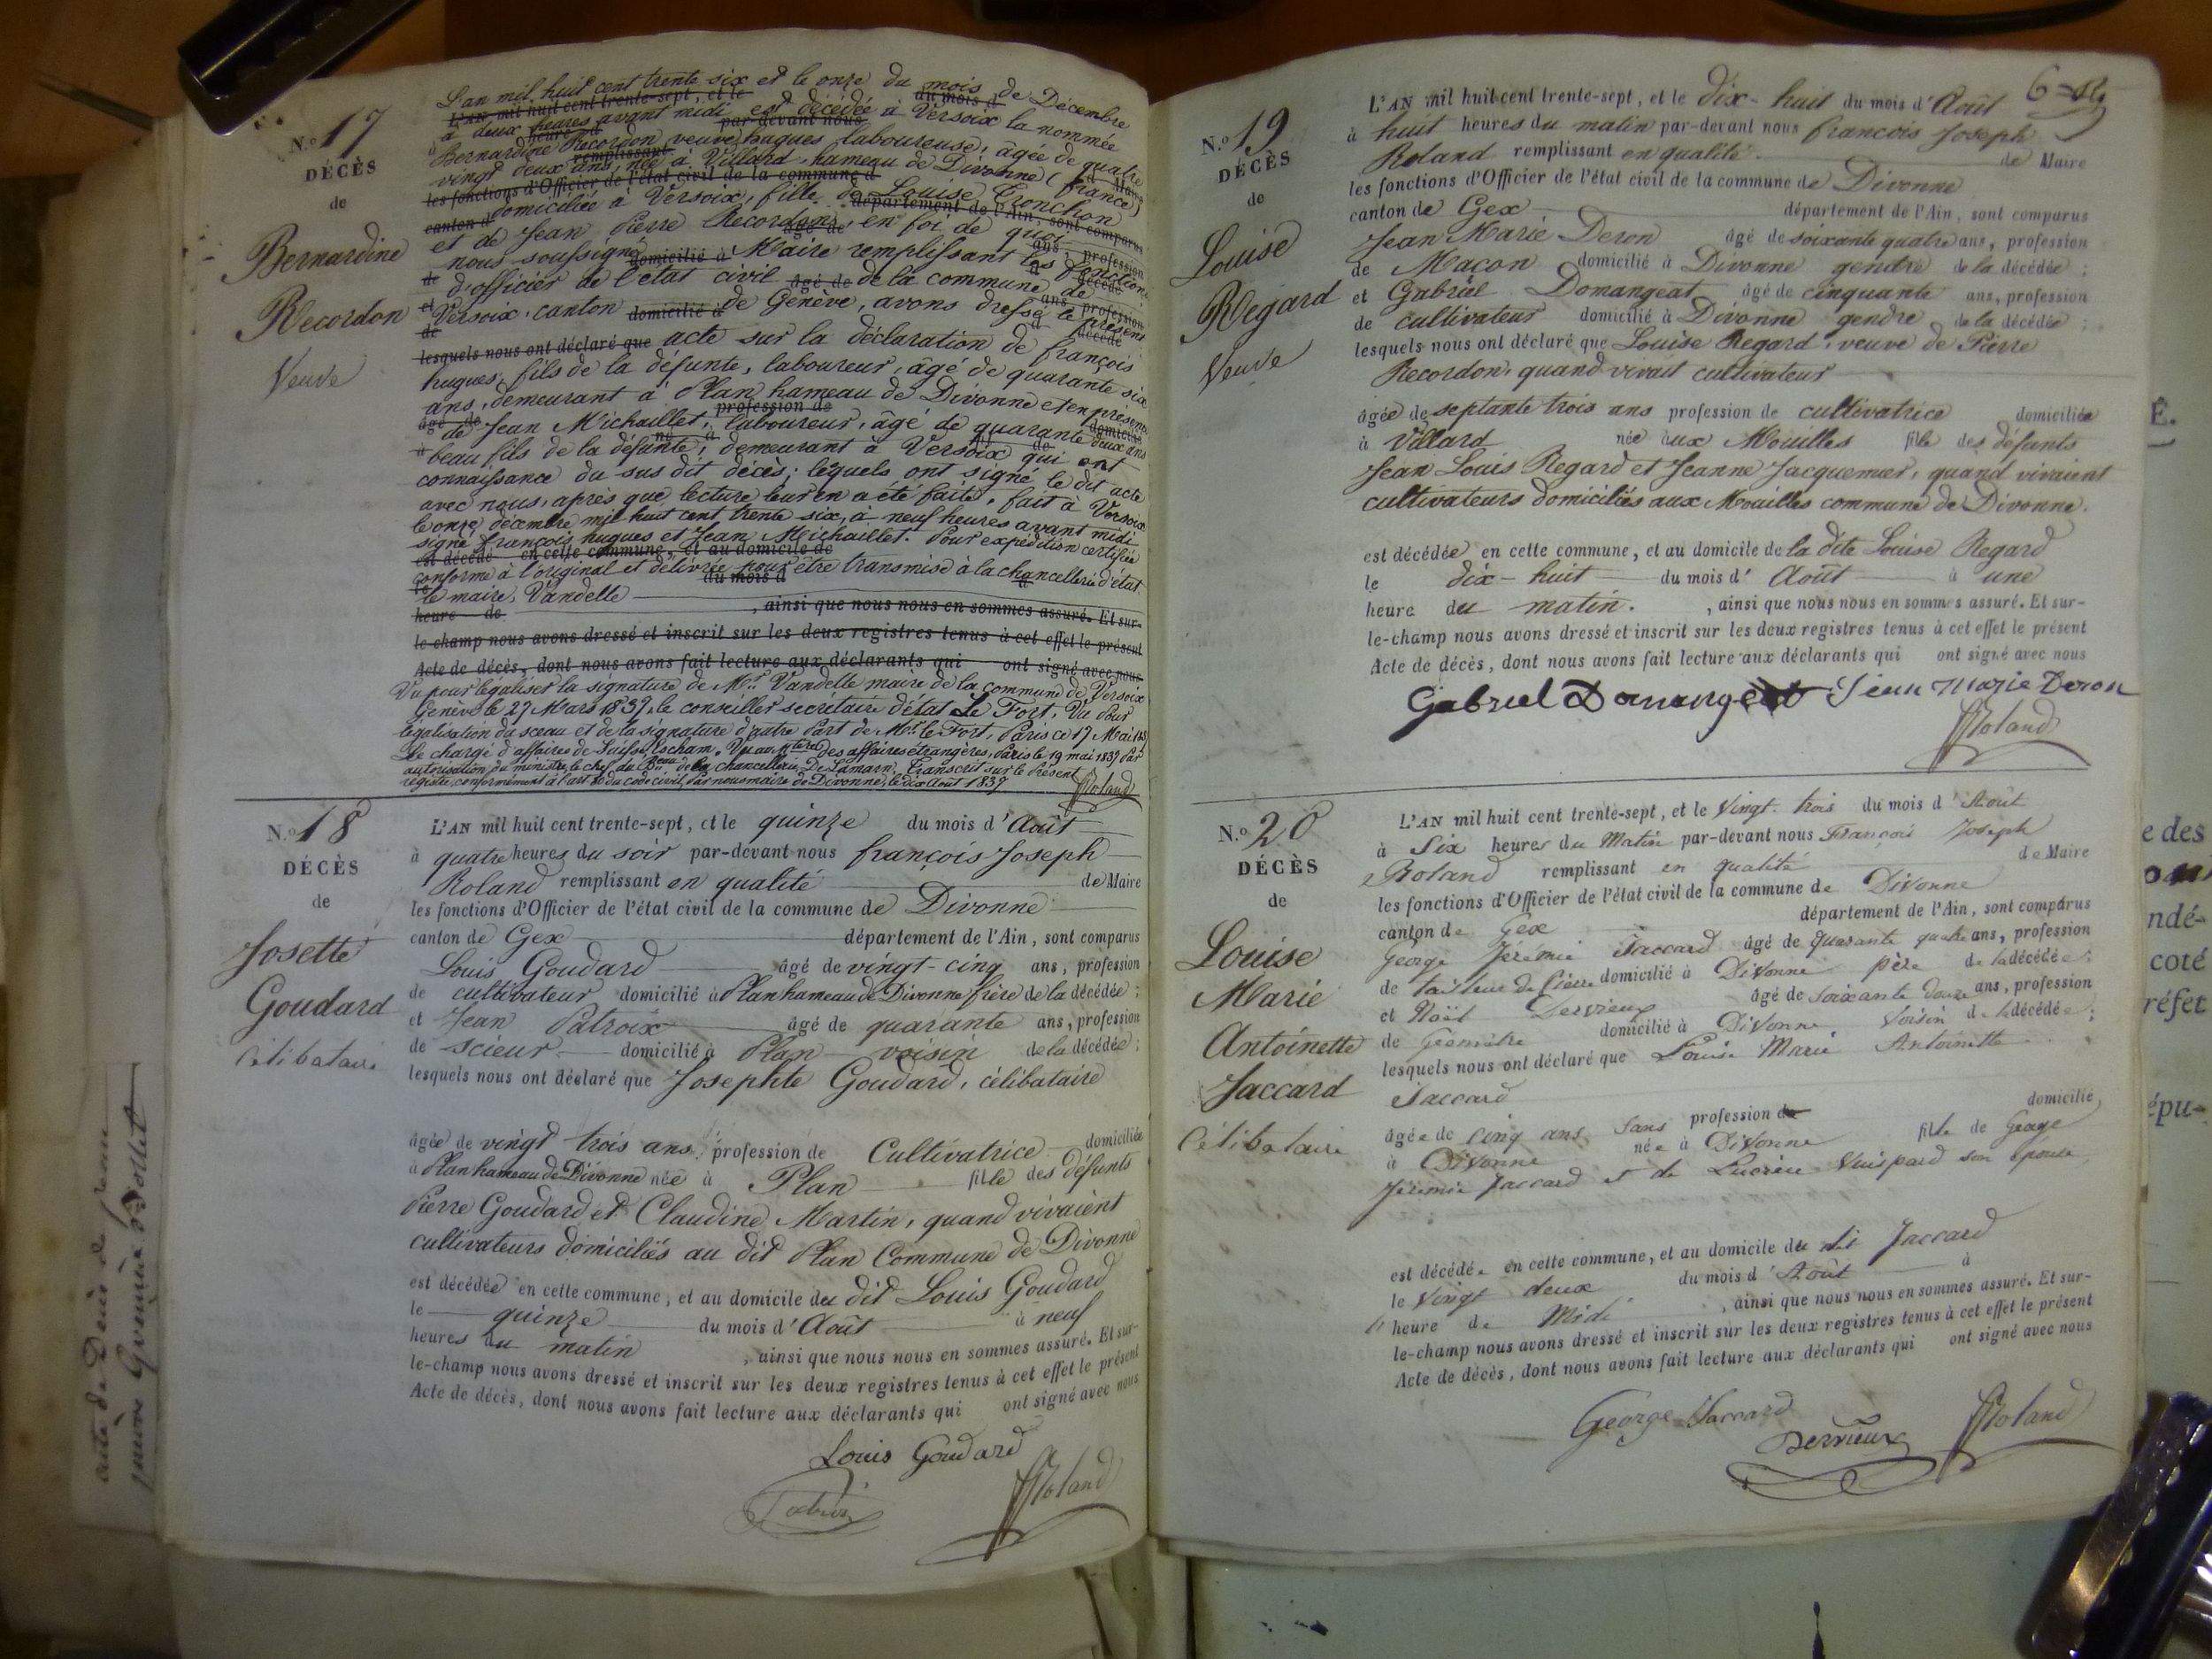 N.º 17
DÉCÈS
de
Bernardine
Recordon
Veuve
L'an mil huit cent trente six et le onze du mois de Décembre
L'an mil huit cent trente-sept, et le du mois d
à deux heures avant midi est décédée à Versoix la nommée
heure d par-devant nous
Bernardine Recordon veuve hugues laboureuse, âgée de quatre
remplissant
vingt deux ans, née à Villard, hameau de Divonne (france)
les fonctions d'Officier de l'état civil de la commune d
domiciliée à Versoix, fille de Louise Tronchon
canton d département de l'Ain, sont comparus
et de Jean Pierre Recordon, en foi de quoi
âgé de ans, profession
nous soussigné Maire remplissant les fonctions
de domicilié à
d'officier de l'état civil de la commune de
et âgé de ans, profession
Versoix, canton de Genève, avons dressé le présent
de domicilié à
lesquels nous ont déclaré que acte sur la déclaration de françois
hugues, fils de la défunte, laboureur, âgé de quarante six
ans, demeurant à Plan hameau de Divonne et en présence
âgé de profession de
de Jean Michaillet, laboureur, âgé de quarante deux ans
beau fils de la défunte, demeurant à Versoix qui ont
connaissance du sus dit décès; lesquels ont signé le dit acte
avec nous, après que lecture leur en a été faite. fait à Versoix
le onze décembre mil huit cent trente six, à neuf heures avant midi
signé françois hugues et Jean Michaillet. Pour expédition certifiée
est décédé en cette commune, et au domicile de
conforme à l'original et délivrée pour être transmise à la chancellerie d'état.
le du mois d
le maire, Vandelle
heure de , ainsi que nous nous en sommes assuré. Et sur-
le-champ nous avons dressé et inscrit sur les deux registres tenus à cet effet le présent
Acte de décès, dont nous avons fait lecture aux déclarants qui ont signé avec nous
Vu pour légaliser la signature de Mr. Vandelle maire de la commune de Versoix
Genève le 27 Mars 1837, le conseiller secrétaire d'état Le Fort. Vu pour
légalisation du sceau et de la signature d'autre part de Mr. le Fort, Paris ce 17 Mai
Le chargé d'affaires de Suisse, Vu au des affaires étrangères, Paris le 19 mai 1837 Par
autorisation du ministre, le chef du Bau de la chancellerie, De Lamarn. Transcrit sur le présent
registre, conformément à l'art du code civil, Par nous maire de Divonne, le dix Août 1837
Roland
N.º 18
DÉCÈS
de
Josette
Goudard
Célibataire
L'AN mil huit cent trente-sept, et le quinze du mois d'Août
à quatre heures du soir par-devant nous françois Joseph
Roland remplissant en qualité de Maire
les fonctions d'Officier de l'état civil de la commune de Divonne
canton de Gex département de l'Ain, sont comparus
Louis Goudard âgé de vingt-cinq ans, profession
de cultivateur domicilié à Plan hameau de Divonne frère de la décédée;
et Jean Patroix âgé de quarante ans, profession
de scieur domicilié à Plan voisin de la décédée;
lesquels nous ont déclaré que Josephte Goudard, célibataire
âgée de vingt trois ans, profession de Cultivatrice domiciliée
à Plan hameau de Divonne née à Plan fille des défunts
Pierre Goudard et Claudine Martin, quand vivaient
cultivateurs domiciliés au dit Plan Commune de Divonne
est décédée en cette commune, et au domicile du dit Louis Goudard
le quinze du mois d'Août à neuf
heures du matin , ainsi que nous nous en sommes assuré. Et sur-
le-champ nous avons dressé et inscrit sur les deux registres tenus à cet effet le présent
Acte de décès, dont nous avons fait lecture aux déclarants qui ont signé avec nous
Louis Goudard
Roland
6
N.º 19
DÉCÈS
de
Louise
Regard
Veuve
L'AN mil huit cent trente-sept, et le dix-huit du mois d'Août
à huit heures du matin par-devant nous françois Joseph
Roland remplissant en qualité de Maire
les fonctions d'Officier de l'état civil de la commune de Divonne
canton de Gex département de l'Ain, sont comparus
Jean Marie Deron âgé de soixante quatre ans, profession
de Maçon domicilié à Divonne gendre de la décédée;
et Gabriel Domangeat âgé de cinquante ans, profession
de cultivateur domicilié à Divonne gendre de la décédée;
lesquels nous ont déclaré que Louise Regard, veuve de Pierre
Recordon, quand vivait cultivateur
âgée de septante trois ans profession de cultivatrice domiciliée
à Villard née aux Mouilles fille des défunts
Jean Louis Regard et Jeanne Jacquemier, quand vivaient
cultivateurs domiciliés aux Mouilles commune de Divonne.
est décédée en cette commune, et au domicile de la dite Louise Regard
le dix-huit du mois d'Août à une
heure du matin. , ainsi que nous nous en sommes assuré. Et sur-
le-champ nous avons dressé et inscrit sur les deux registres tenus à cet effet le présent
Acte de décès, dont nous avons fait lecture aux déclarants qui ont signé avec nous
Gabriel Domangeat Jean Marie Deron
Roland
N.º 20
DÉCÈS
de
Louise
Marie
Antoinette
Jaccard
Célibataire
L'AN mil huit cent trente-sept, et le Vingt trois du mois d'Août
à Six heures du Matin par-devant nous François Joseph
Roland remplissant en qualité de Maire
les fonctions d'Officier de l'état civil de la commune de Divonne
canton de Gex département de l'Ain, sont comparus
George Jérémie Jaccard âgé de quarante quatre ans, profession
de tailleur de Pierre domicilié à Divonne père de la décédée;
et Noël Dervieux âgé de soixante douze ans, profession
de Géomètre domicilié à Divonne Voisin de la décédée;
lesquels nous ont déclaré que Louise Marie Antoinette
Jaccard
âgée de cinq ans Sans profession de domicilié
à Divonne née à Divonne fille de George
Jérémie Jaccard et de Lucrèce Vuispard son épouse
est décédée en cette commune, et au domicile du dit Jaccard
le Vingt deux du mois d'Août à
heure de Midi , ainsi que nous nous en sommes assuré. Et sur-
le-champ nous avons dressé et inscrit sur les deux registres tenus à cet effet le présent
Acte de décès, dont nous avons fait lecture aux déclarants qui ont signé avec nous
George Jaccard
Dervieux
Roland
É.
e des
ndé-
coté
réfet
épu-